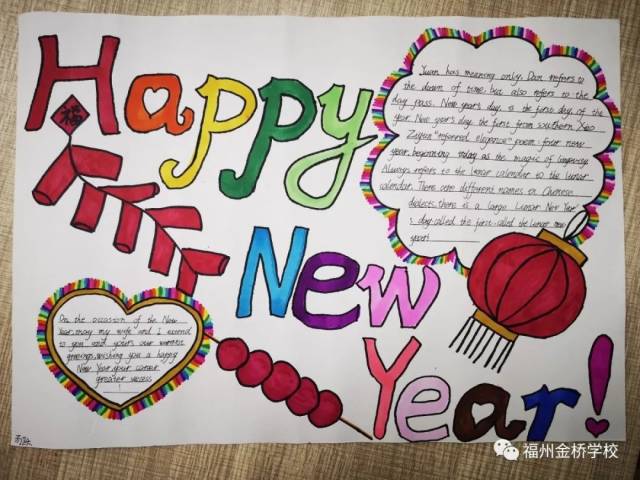 Happy
福
New
Year!
Yuan has meaning only. Dan refers to
the dawn of time but also refers to the
day pass. New year's day, is the first day of the
year. New year's day the first from southern Xiao
poem: four new
year, beginning today as the magic of longevity
Always refers to the lunar calendar to the lunar
calendar. There are different names in Chinese
dialects, there is a large Lunar New Year'
s day called the first called the lunar new
year!
On the occasion of the New
Year, may my wife and I extend
to you and yours our warmest
greetings, wishing you a happy
New Year, your career
greater success
!
福州金桥学校